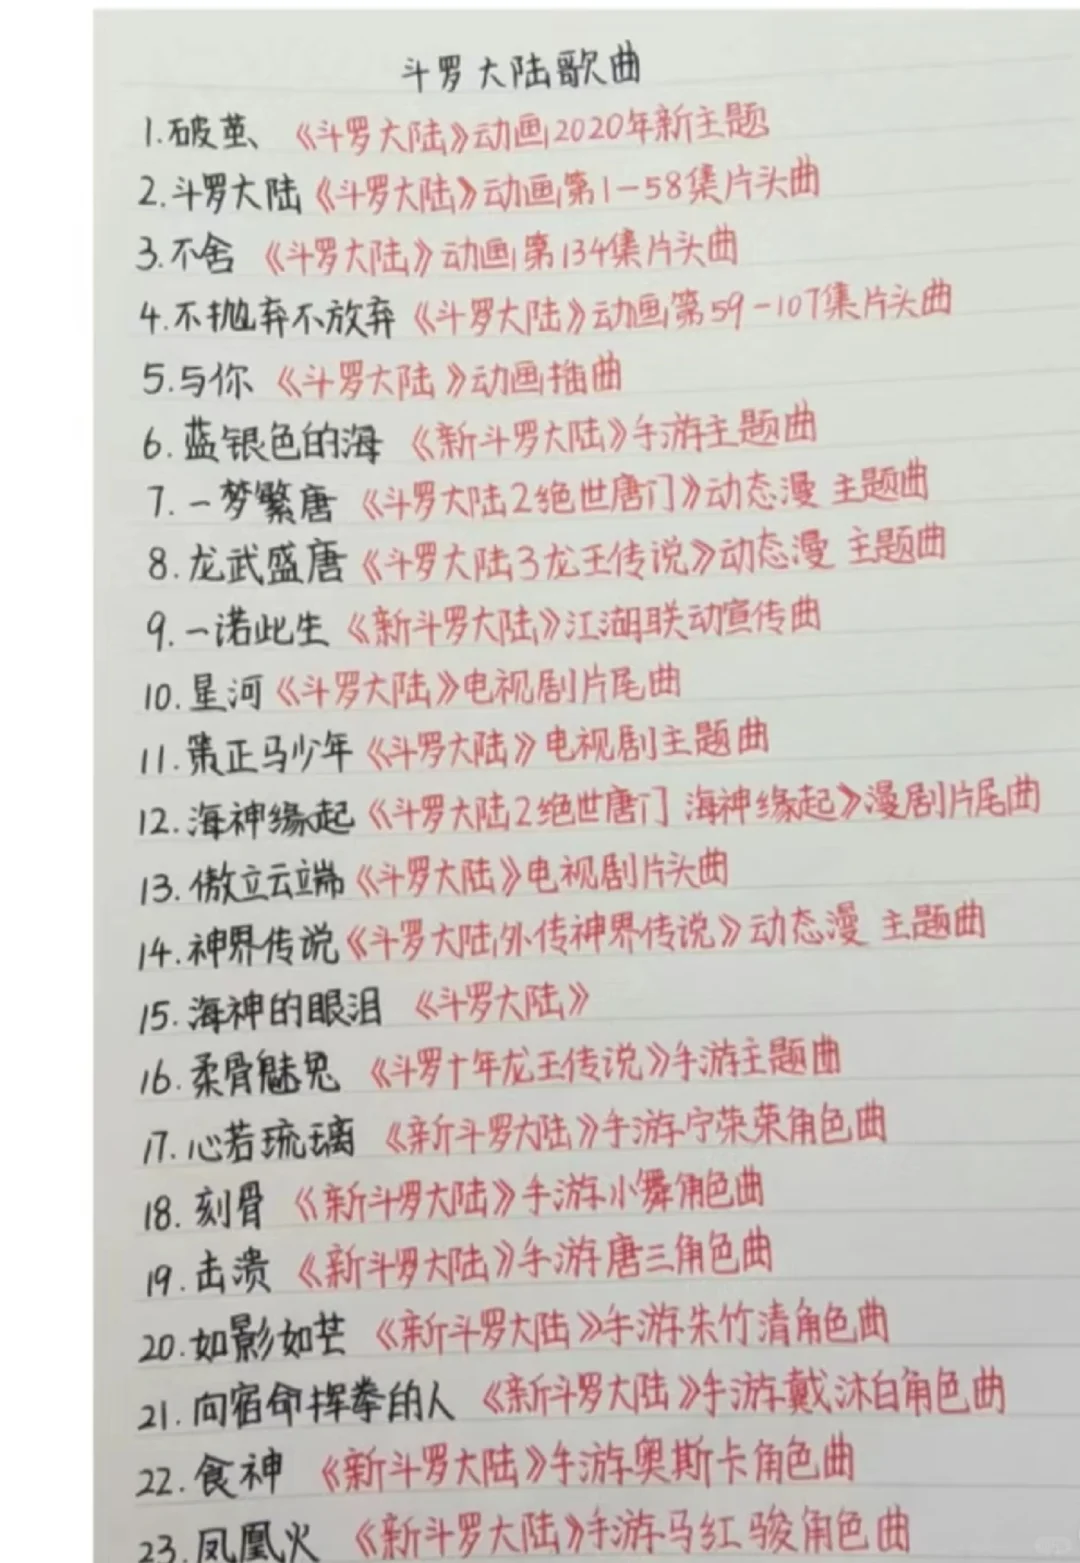 斗罗大陆歌曲
1.破茧 《斗罗大陆》动画2020年新主题
2.斗罗大陆《斗罗大陆》动画第1-58集片头曲
3.不舍 《斗罗大陆》动画第134集片头曲
4.不抛弃不放弃《斗罗大陆》动画第59-107集片头曲
5.与你 《斗罗大陆》动画插曲
6.蓝银色的海 《新斗罗大陆》手游主题曲
7.一梦繁唐 《斗罗大陆2绝世唐门》动态漫 主题曲
8.龙武盛唐《斗罗大陆3龙王传说》动态漫 主题曲
9.一诺此生 《新斗罗大陆》江湖联动宣传曲
10.星河《斗罗大陆》电视剧片尾曲
11.策正马少年《斗罗大陆》电视剧主题曲
12.海神缘起《斗罗大陆2绝世唐门 海神缘起》漫剧片尾曲
13.傲立云端《斗罗大陆》电视剧片头曲
14.神界传说《斗罗大陆外传神界传说》动态漫 主题曲
15.海神的眼泪 《斗罗大陆》
16.柔骨魅兔 《斗罗十年龙王传说》手游主题曲
17.心若琉璃 《新斗罗大陆》手游宁荣荣角色曲
18.刻骨 《新斗罗大陆》手游小舞角色曲
19.击溃 《新斗罗大陆》手游唐三角色曲
20.如影如芒 《新斗罗大陆》手游朱竹清角色曲
21.向宿命挥拳的人 《新斗罗大陆》手游戴沐白角色曲
22.食神 《新斗罗大陆》手游奥斯卡角色曲
23.凤凰火 《新斗罗大陆》手游马红骏角色曲